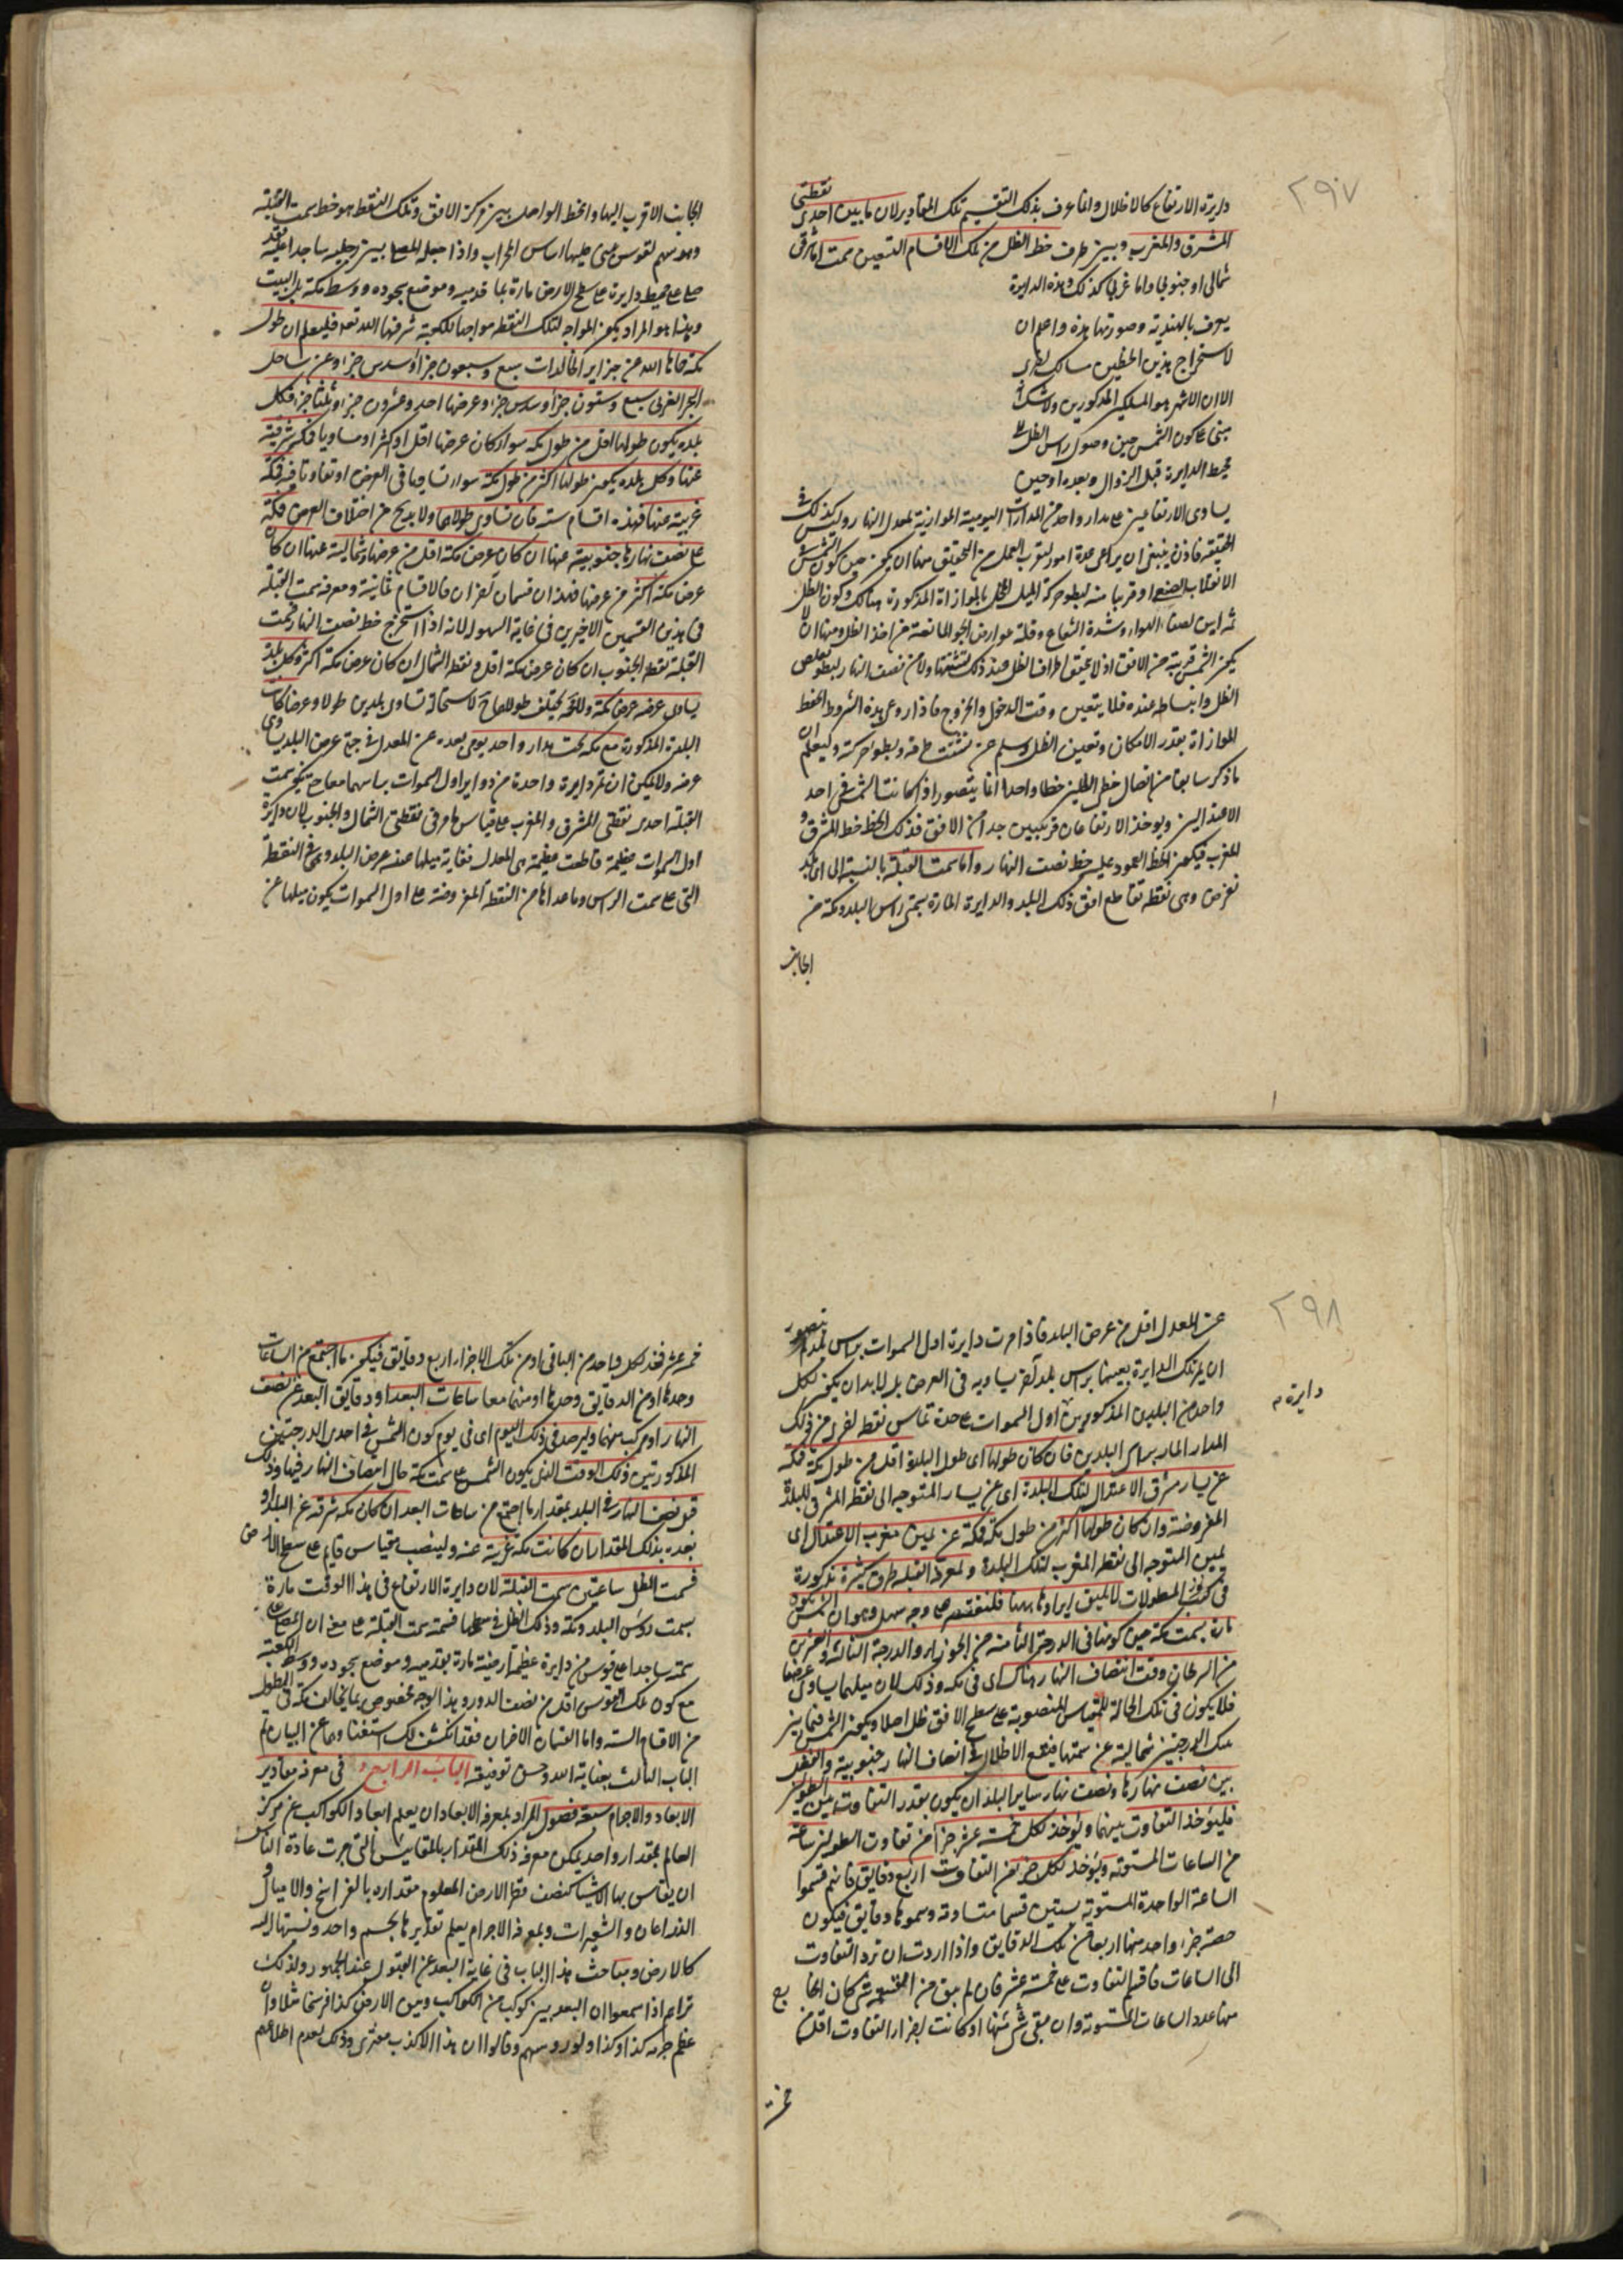 ٢٩٧
دايرة الارتفاع كالاظلال وانما عرف بذلك التقسيم تلك المقادير لان ما بين احدى نقطتى
المشرق والمغرب وبين طرف خط الظل من تلك الاقسام التسعين سمت اما شرقى
شمالى او جنوبى واما غربى كذلك وهذه الدايرة
يعرف بالهندية وصورتها هذه واعلم ان
لاستخراج هذين الخطين مسالك اخرى
الا ان الاشهر هو المسلكين المذكورين ولا شك
مبنى على كون الشمس حين وصول راس الظل الى
محيط الدايرة قبل الزوال وبعده او حين
يساوى الارتفاعين على مدار واحد من المدارات اليومية الموازية لمعدل النهار وليس كذلك فى
الحقيقة فاذن ينبغى ان يراعى عدة امور ليقرب العمل من التحقيق منها ان يكون حين كون الشمس فى
الانقلاب الصيفى او قريبا منه لبطو حركة الميل المخل بالموازاة المذكورة هناك وكون الظل
ثمه ابين لصفاء الهواء وشدة الشعاع وقلة عوارض الجو المانعة من اخذ الظل ومنها ان لا
يكون الشمس قريبة من الافق اذ لا يتحقق اطراف الظل عند ذلك لتشتتها ولا من نصف النهار لبطو تقلص
الظل وانبساطه عنده فلا يتعين وقت الدخول والخروج فاذا روعى هذه الشروط انحفظ
الموازاة بقدر الامكان وتعين الظل وسلم من تشتت طرفه وبطو حركته وليعلم ان
ما ذكر سابقا من اتصال خطى الظلين خطا واحدا انما يتصور اذا كانت الشمس فى احد
الاعتدالين ويوخذ الارتفاعان قريبين جدا من الافق فذلك الخط خط المشرق و
المغرب فيكون الخط العمود عليه خط نصف النهار واما سمت القبلة بالنسبة الى اى بلد
نفرض وهى نقطة تقاطع افق ذلك البلد والدايرة المارة بسمتى راس البلد ومكة من
الجانب
الجانب الاقرب اليها والخط الواصل بين مركز الافق وتلك النقطة هو خط سمت القبلة
وهو سهم لقوس يبنى عليها اساس المحراب واذا جعله المصلى بين رجليه ساجدا عليه فقد
صلى على محيط دايرة على سطح الارض مارة بما قدميه وموضع سجوده ووسط مكة بل البيت
وهذا هو المراد بكون المواجه لتلك النقطة مواجها للكعبة شرفها الله تعالى فليعلم ان طول
مكة حماها الله من جزاير الخالدات سبع وسبعون جزأ وسدس جزء وعن ساحل
البحر الغربى سبع وستون جزأ وسدس جزء وعرضها احد وعشرون جزء وثلثا جزء فكل
بلدة يكون طولها اقل من طول مكة سواء كان عرضها اقل او اكثر او مساويا فمكة شرقية
عنها وكل بلدة يكون طولها اكثر من طول مكة سواء تساويا فى العرض او تفاوتا فيه فمكة
غربية عنها فهذه اقسام ستة فان تساوى طولاهما ولا بد ح من اختلاف العرض فمكة
على نصف نهارها جنوبية عنها ان كان عرض مكة اقل من عرضها وشمالية عنها ان كان
عرض مكة اكثر من عرضها فهذان قسمان اخران فالاقسام ثمانية ومعرفة سمت القبلة
فى هذين القسمين الاخيرين فى غاية السهولة لانه اذا استخرج خط نصف النهار فسمت
القبلة نقطة الجنوب ان كان عرض مكة اقل ونقطة الشمال ان كان عرض مكة اكثر وكل بلدة
يساوى عرضه عرض مكة ولا محة يختلف طولاهما ح لاستحالة تساوى بلدين طولا وعرضا كانت
البلدة المذكورة مع مكة تحت مدار واحد يومى بعده عن المعدل فى جهة عرض البلد يساوى
عرضه ولا يمكن ان تمر دايرة واحدة من دواير اول السموات براسهما معا حتى يكون سمت
القبلة احدى نقطتى المشرق والمغرب على قياس ما مر فى نقطتى الشمال والجنوب لان دايرة
اول السموات عظيمة قاطعت عظيمة هى المعدل فغاية ميلها عنه عرض البلد وهى فى النقطة
التى على سمت الراس وما عداها من النقطة المفروضة على اول السموات يكون ميلها عن
٢٩٨
عن المعدل اقل من عرض البلد فاذا مرت دايرة اول السموات براس بلد لم يتصور
ان يمر تلك الدايرة بعينها براس بلد آخر يساويه فى العرض بل لا بد ان يكون لكل
واحد من البلدين المذكورين اول السموات على حدة تماس نقطة اخرى من ذلك
دايرة
المدار المار براس البلدين فان كان طولها اى طول البلدة اقل من طول مكة فمكة
عن يسار مشرق الاعتدال لتلك البلدة اى عن يسار المتوجه الى نقطة المشرق للبلدة
المفروضة وان كان طولها اكثر من طول مكة فمكة عن يمين مغرب الاعتدال اى
يمين المتوجه الى نقطة المغرب لتلك البلدة ولمعرفة القبلة طرق كثيرة مذكورة
فى كتب المطولات لا يليق ايرادها ههنا فلنقتصر على وجه سهل وهو ان الشمس يكون
مارة بسمت مكة حين كونها فى الدرجة الثامنة من الجوزاء والدرجة الثالثة والعشرين
من السرطان وقت انتصاف النهار هناك اى فى مكة وذلك لان ميلهما يساوى عرضها
فلا يكون فى تلك الحالة للمقياس المنصوبة على سطح الافق ظل اصلا ويكون الشمس فيما بين
تلك الدرجتين شمالية عن سمتها فيقع الاظلال فى انصاف النهار جنوبية والتفضل
بين نصف نهارها ونصف نهار ساير البلدان يكون بقدر التفاوت بين الطولين
فليؤخذ التفاوت بينهما ويؤخذ لكل خمسة عشر جزأ من تفاوت الطولين ساعة
من الساعات المستوية ويؤخذ لكل جزء من التفاوت اربع دقايق فانهم قسموا
الساعة الواحدة المستوية بستين قسما متساوية وسموها دقايق فيكون
حصة جزء واحد منها اربعة من تلك الدقايق واذا اردت ان ترد التفاوت
الى الساعات فاقسم التفاوت على خمسة عشر فان لم يبق من القسمة شئ كان الخارج
منها عدد الساعات المستوية وان بقى شئ منها او كانت اجزاء التفاوت اقل من
خمسة
خمسة عشر فخذ لكل واحد من الباقى او من تلك الاجزاء اربع دقايق فيكون ما اجتمع من الساعات
وحدها او من الدقايق وحدها او منهما معا ساعات البعد او دقايق البعد عن نصف
النهار او مركب منهما وليرصد فى ذلك اليوم اى فى يوم كون الشمس فى احدى الدرجتين
المذكورتين ذلك الوقت الذى يكون الشمس على سمت مكة حال انتصاف النهار فيها وذلك
قبل نصف النهار فى البلد بمقدار ما اجتمع من ساعات البعد ان كان مكة شرقية عن البلد او
بعده بذلك المقدار ان كانت مكة غربية عنه ولينصب مقياس قايم على سطح الارض
فسمت الظل ساعتئذ سمت القبلة لان دايرة الارتفاع فى هذا الوقت مارة
بسمت رؤس البلد ومكة وذلك الظل فى سطحها فسمته سمت القبلة على معنى ان المصلى على
سمته ساجدا على قوس من دايرة عظيمة ارضية مارة بقدميه وموضع سجوده ووسط الكعبة
مع كون تلك القوس اقل من نصف الدور وهذا الوجه مخصوص بما يخالف مكة فى الطول
من الاقسام الستة واما القسمان الاخران فقد انكشف لك استغناؤهما عن البيان تم
الباب الثالث بعناية الله وحسن توفيقه الباب الرابع فى معرفة مقادير
الابعاد والاجرام سبعة فصول المراد بمعرفة الابعاد ان يعلم ابعاد الكواكب عن مركز
العالم بمقدار واحد يمكن معرفة ذلك المقدار بالمقاييس التى جرت عادة الناس
ان يقاس بها الاشياء كنصف قطر الارض المعلوم مقداره بالفراسخ والاميال و
الذراعان والشعيرات وبمعرفة الاجرام يعلم تقديرها بجسم واحد ونسبتها اليه
كالارض ومباحث هذا الباب فى غاية البعد عن القبول عند الجمهور ولذلك
تراهم اذا سمعوا ان البعد بين كوكب من الكواكب وبين الارض كذا فرسخا مثلا وان
عظم جرمه كذا وكذا ولوو رؤسهم وقالوا ان هذا الا كذب مفترى وذلك لعدم اطلاعهم